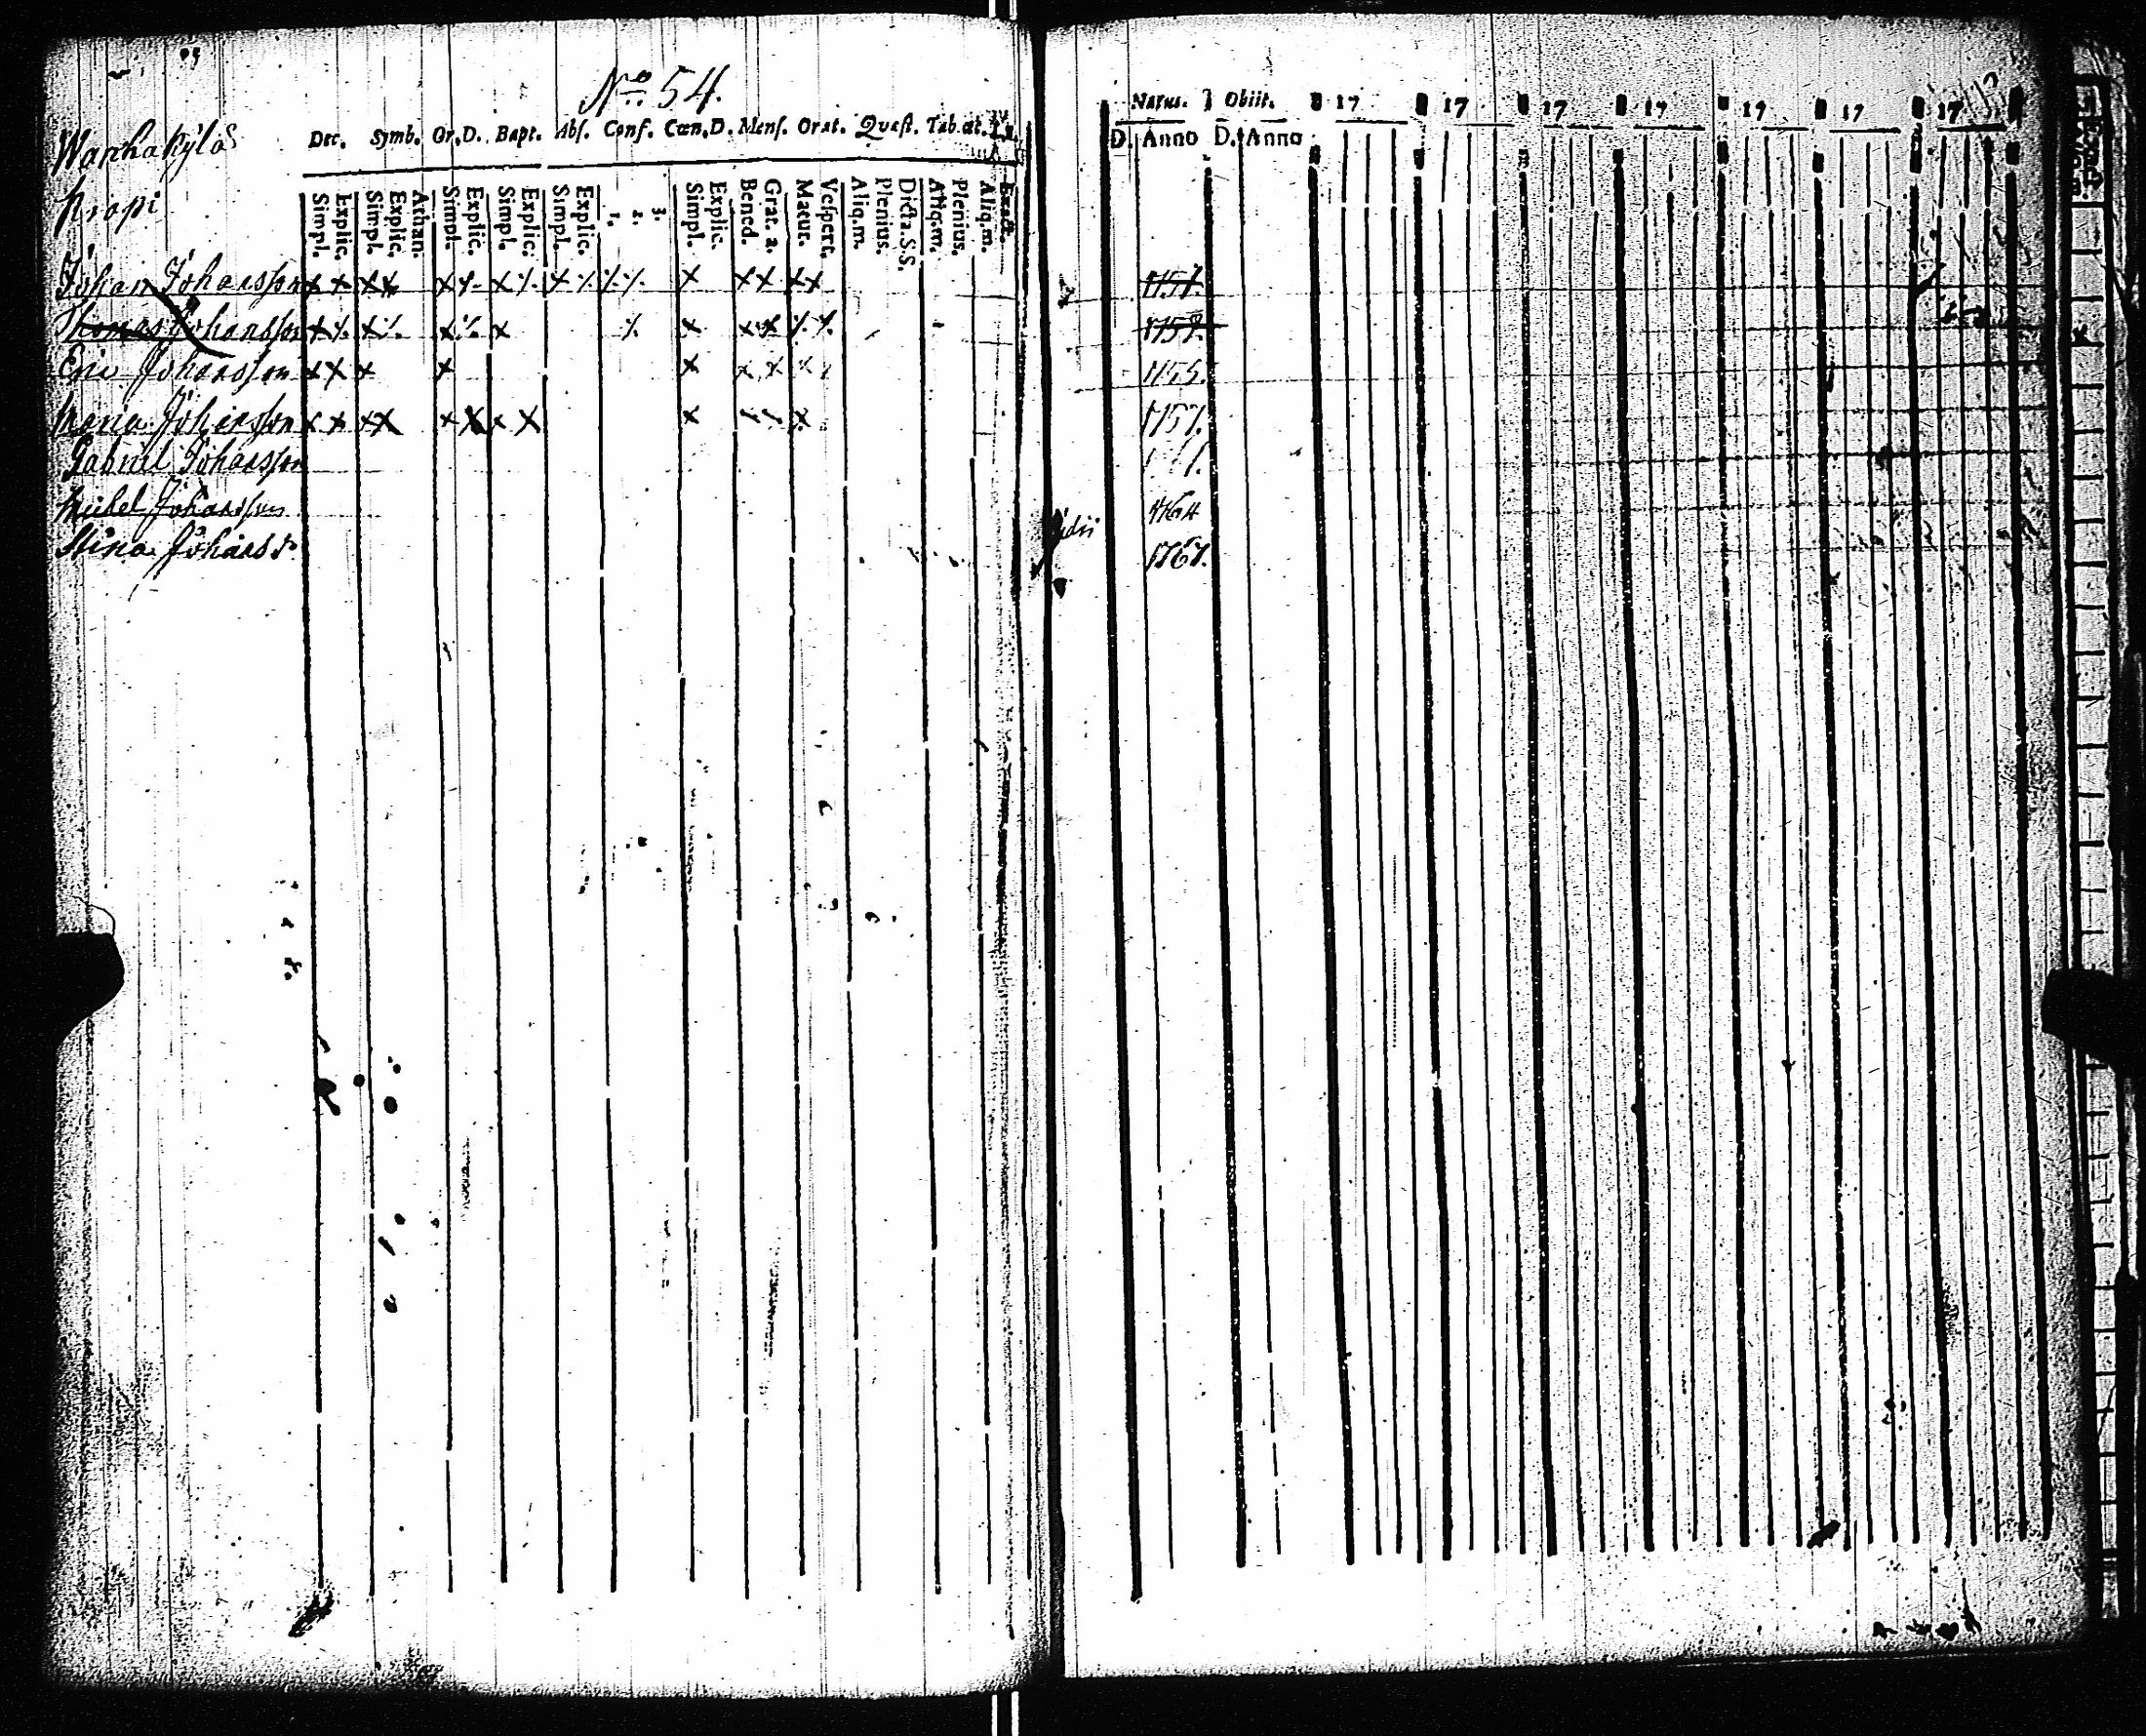 No 54.
Wanhakylä
Dec. Symb. Or.D. Bapt. Abs. Conf. Cœn.D. Mens. Orat. Quæst. Tab.œc.
Knopi
Simpl. Explic. Simpl. Explic. Athan. Simpl. Explic. Simpl. Explic. Simpl. Explic. 1. 2. 3. Simpl. Explic. Bened. Grat. a. Matut. Vespert. Aliq.m. Plenius. Dicta.S.S. Aliq.m. Plenius. Aliq.m. Exact.
Johan Johansson
Thomas Johansson
Eric Johansson
Maria Johansson
Gabriel Johansson
Michel Johansson
Stina Johansd
Natus. Obiit. 17 17 17 17 17 17 17
D. Anno D. Anno
1757.
1755.
1757.
1764
1767.